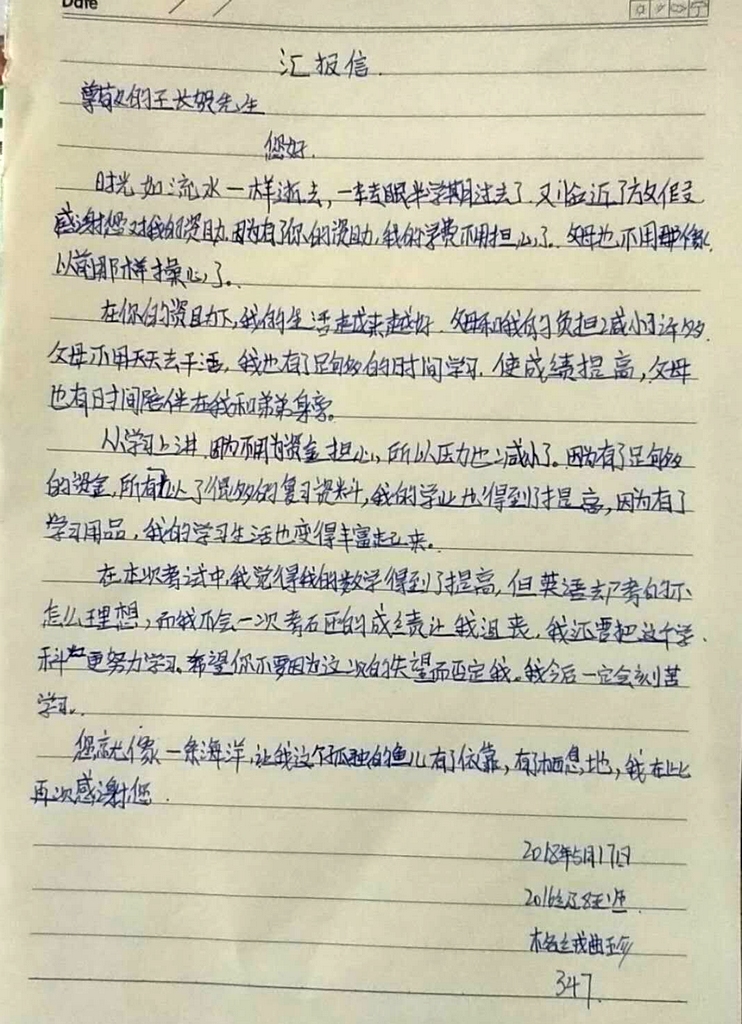 Date
汇报信.
尊敬的王长娥先生
您好.
时光如流水一样逝去,一转眼半学期过去了.又临近了放假
感谢您对我的资助.因为有了你的资助,我的学费不用担心了.父母也不用那像
以前那样操心了。
在你的资助下,我的生活越来越好.父母和我的负担减小了许多.
父母不用天天去干活,我也有了足够多的时间学习.使成绩提高,父母
也有时间陪伴在我和弟弟身旁。
从学习上讲 因为不用为资金担心,所以压力也减小了。因为有了足够多
的资金,所有了很多的复习资料,我的学业也得到了提高,因为有了
学习用品,我的学习生活也变得丰富起来。
在本次考试中,我觉得我的数学得到了提高,但英语却考的不
怎么理想,而我不会一次考砸的成绩让我沮丧,我还要把这个学
科更努力学习。希望你不要因为这次的失望而否定我。我今后一定会刻苦
学习.
您就像一条海洋,让我这个孤独的鱼儿有了依靠,有了栖息地,我在此
再次感谢您.
2018年5月17日
2016级8班
347.